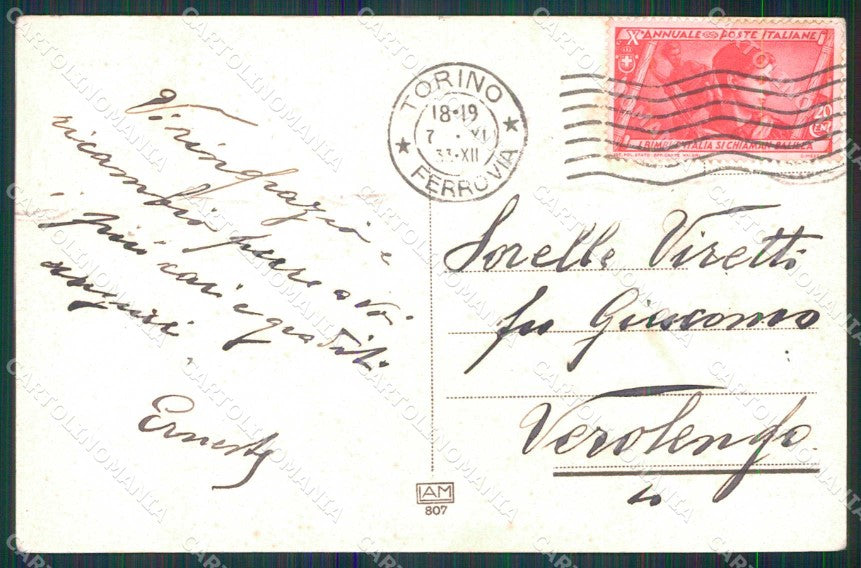 Vi ringrazio e
ricambio pure a voi
i più cari e graditi
auguri
Ernesto
TORINO
18·19
7 · XI
33·XII
FERROVIA
X ANNUALE POSTE ITALIANE
20
CENT
I BIMBI D'ITALIA SI CHIAMAN BALILLA
Sorelle Viretti
fu Giacomo
Verolengo
IAM
807
CARTOLINOMANIA